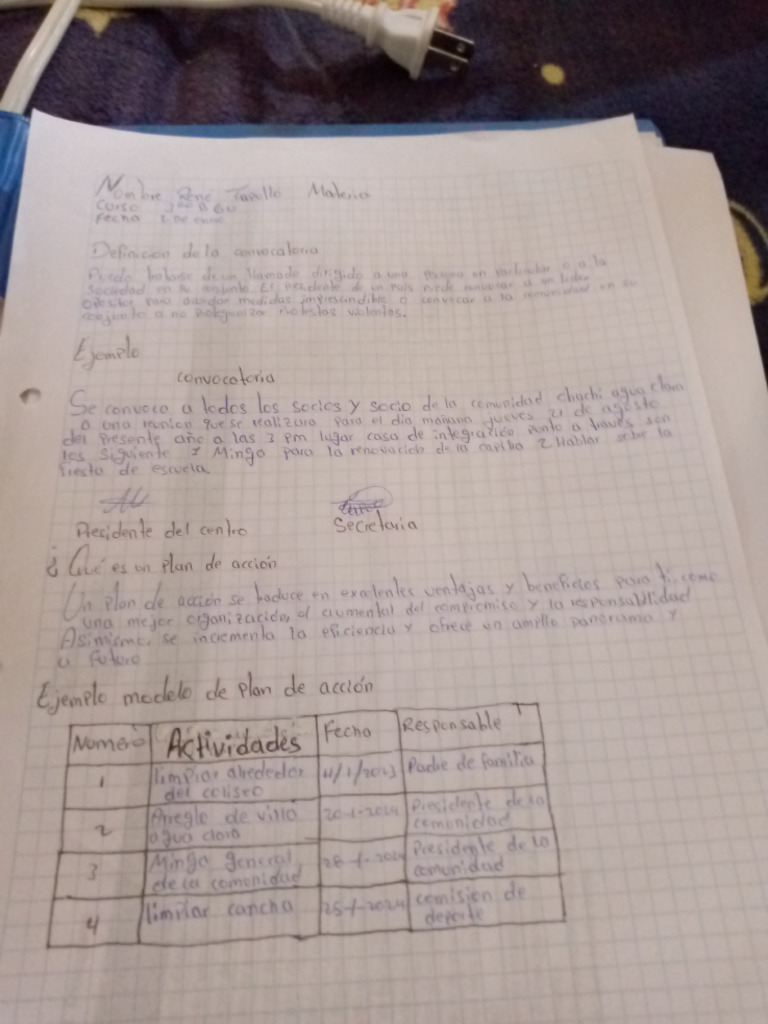 Nombre Rene Tapullo Materia
Curso
Fecha
Definicion de la convocatoria
Puede tratarse de un llamado dirigido a una persona en particular o a la
sociedad en su conjunto. El presidente de un país puede convocar a un líder
opositor para acordar medidas imprescindible o convocar a la comunidad en su
conjunto a no protagonizar protestas violentas.
Ejemplo
convocatoria
Se convoca a todos los socios y socio de la comunidad chachi agua clara
a una reunion que se realizara para el dia mañana jueves 21 de agosto
del Presente año a las 3 pm lugar casa de integración punto a través son
los siguiente 1 Minga para la renovación de la capilla 2 Hablar sobre la
fiesta de escuela.
Presidente del centro Secretaria
¿Qué es un plan de acción
Un plan de acción se traduce en excelentes ventajas y beneficios para ti, como
una mejor organización, al aumental del compromiso y la responsabilidad
Asimismo, se incrementa la eficiencia y ofrece un amplio panorama y
a futuro
Ejemplo modelo de plan de acción
Numero Actividades Fecha Responsable
1 limpiar alrededor del coliseo 11/1/2023 Padre de familia
2 Arreglo de villa agua clara 20-1-2024 Presidente de la comonidad
3 Minga general de la comonidad 28-1-2024 Presidente de la comonidad
4 limpiar cancha 25-1-2024 comision de deporte